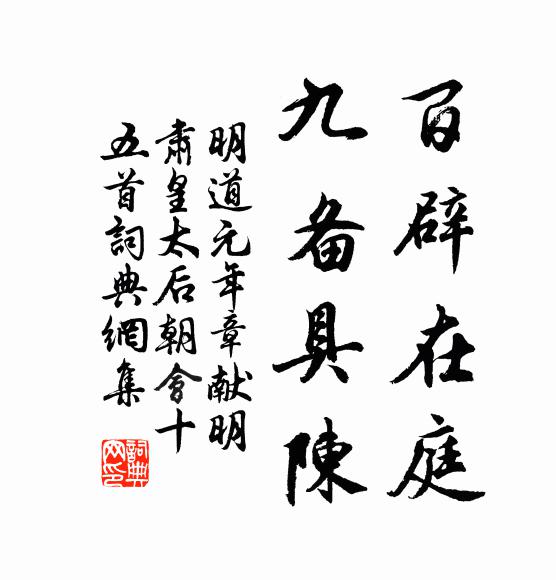 百辟在庭
九备具陳
明道元年章献明
肅皇太后朝會十
五首詞典網集
詞典
网印